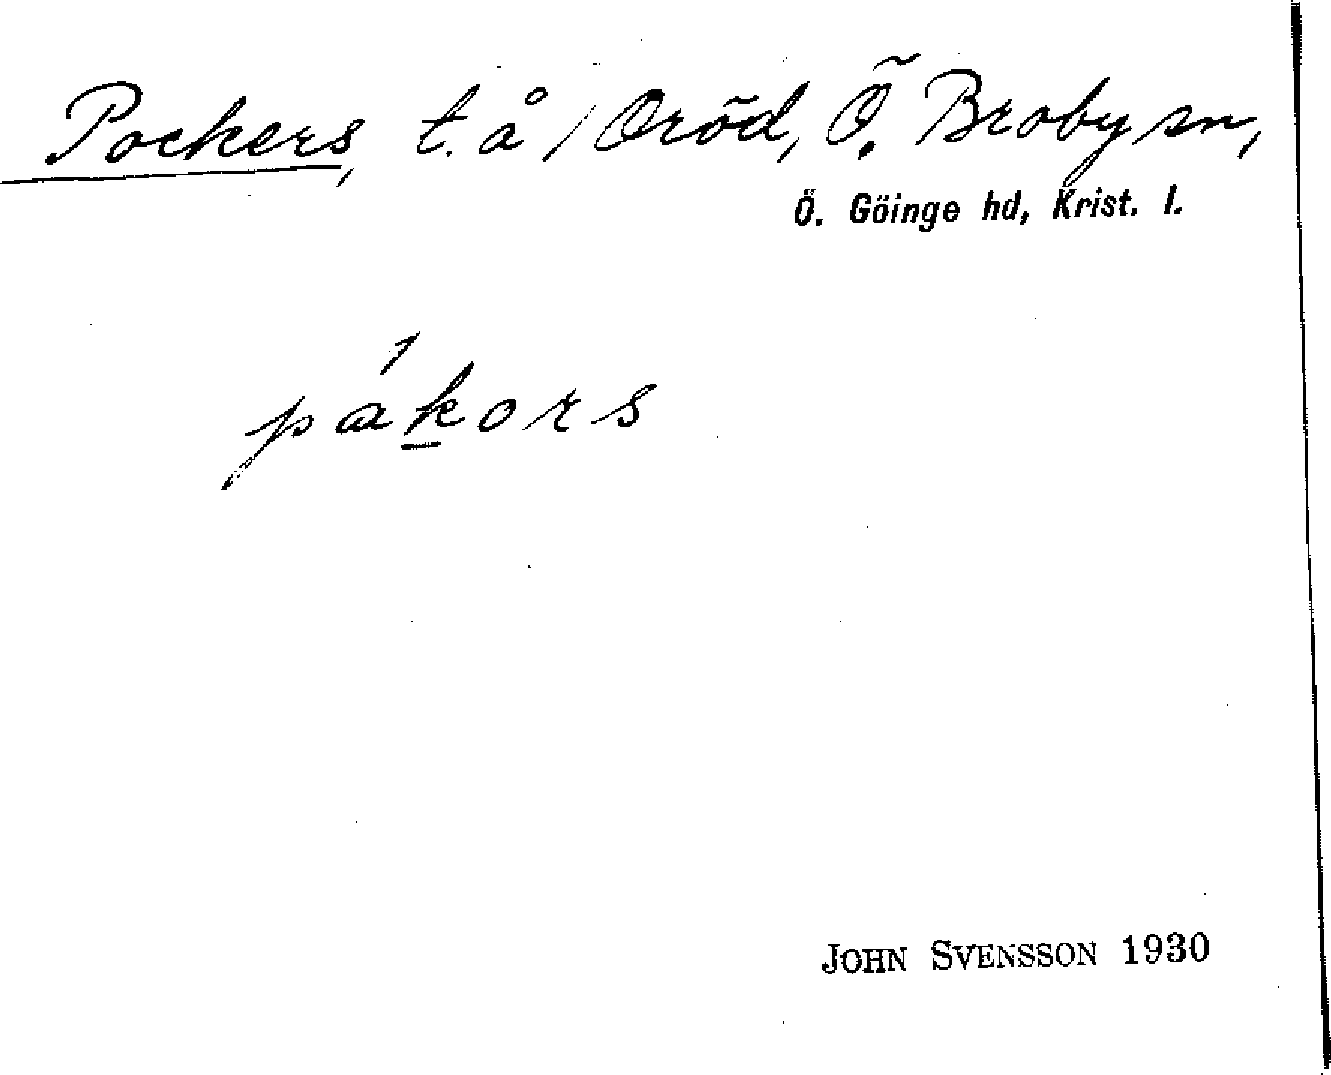 Pockers, t. å / Oröd, Ö. Broby sn,
Ö. Göinge hd, Krist. l.
JOHN SVENSSON 1930